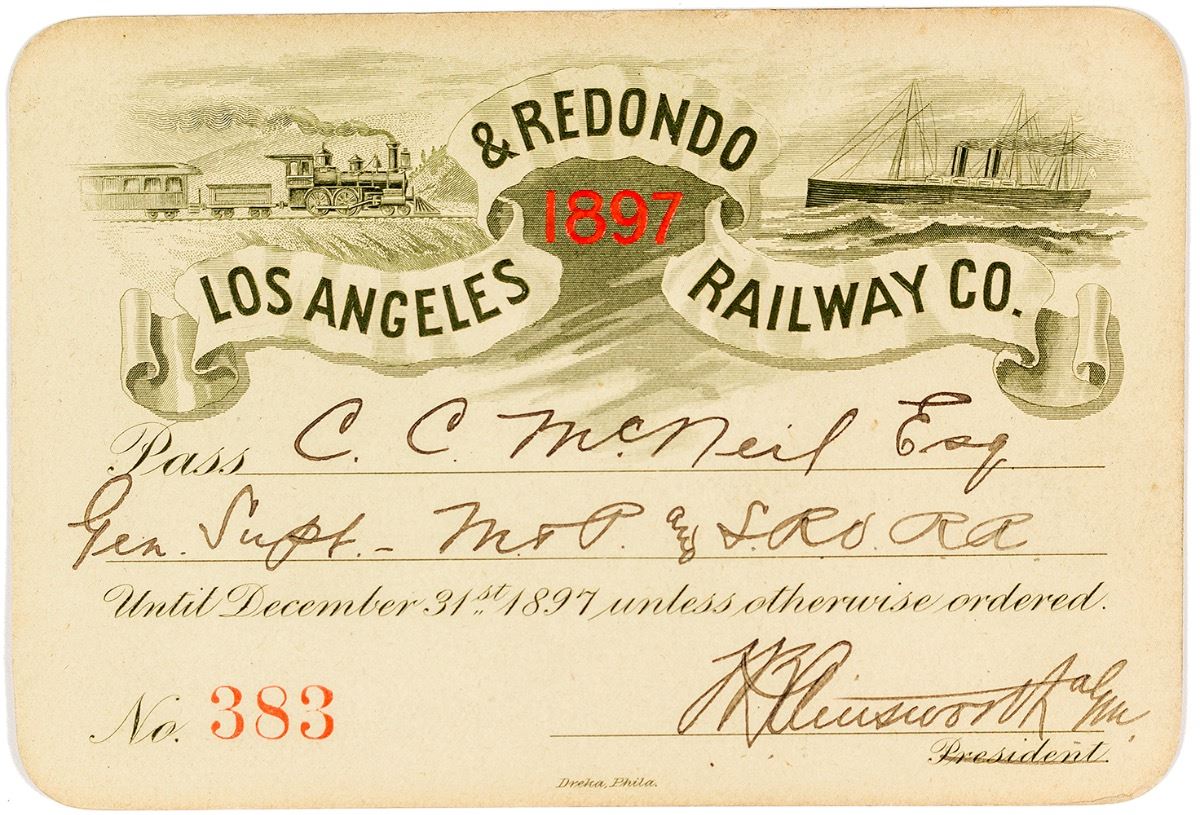 LOS ANGELES & REDONDO RAILWAY CO.
1897
Pass C. C. McNeil Esq
Gen. Supt. - M. & P. and S. R. RR
Until December 31st 1897, unless otherwise ordered.
Ainsworth
No. 383
President.
Dreka, Phila.